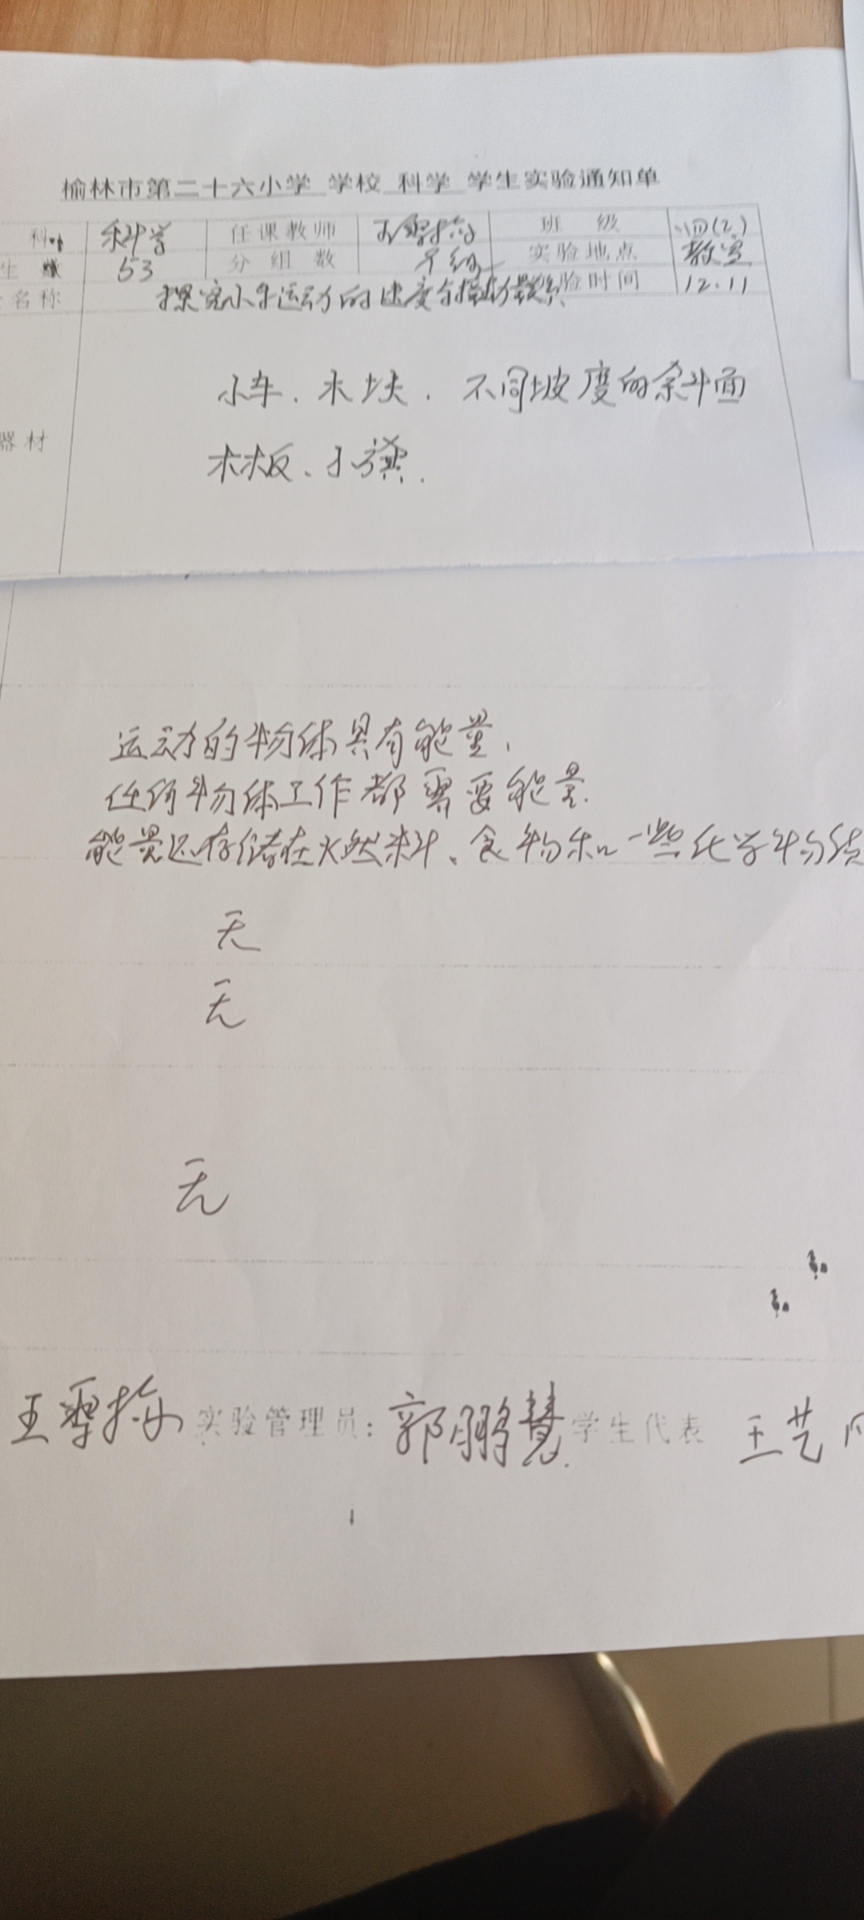 榆林市第二十六小学 学校 科学 学生实验通知单
科 科学 任课教师 王雪梅 班 级 四(2)
生 53 分 组 数 实验地点 教室
名称 探究小车运动的速度与 验时间 12.11
小车、木块、不同坡度的斜面
器材
木板、小旗.
运动的物体具有能量,
任何物体工作都需要能量.
能量还存储在燃料、食物和一些化学物质
无
无
无
王雪梅 实验管理员: 郭鹏慧 学生代表 王艺